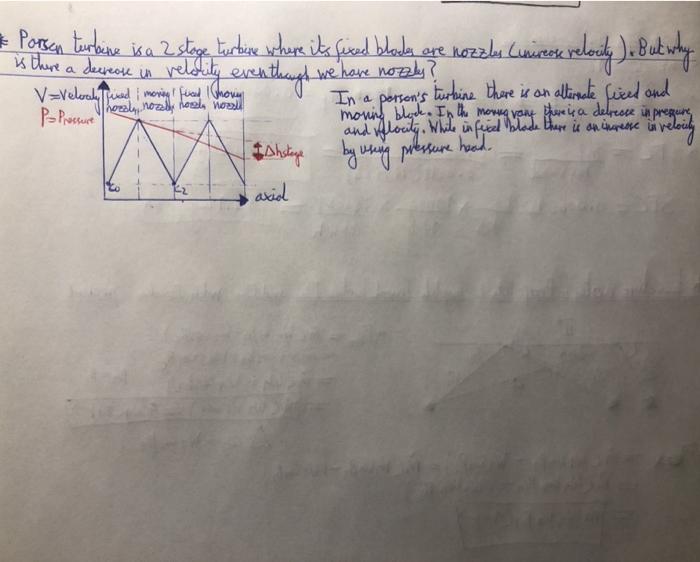 * Parson turbine is a 2 stage turbine where its fixed blades are nozzles (increase velocity). But why
is there a decrease in velocity even though we have nozzles?
V=Velocity
P=Pressure
fixed moving fixed moving
nozzle nozzle nozzle nozzle
Δhstage
C0
C2
axial
In a parson's turbine there is an alternate fixed and
moving blade. In the moving vane there is a decrease in pressure
and velocity. While in fixed blade there is an increase in velocity
by using pressure head.